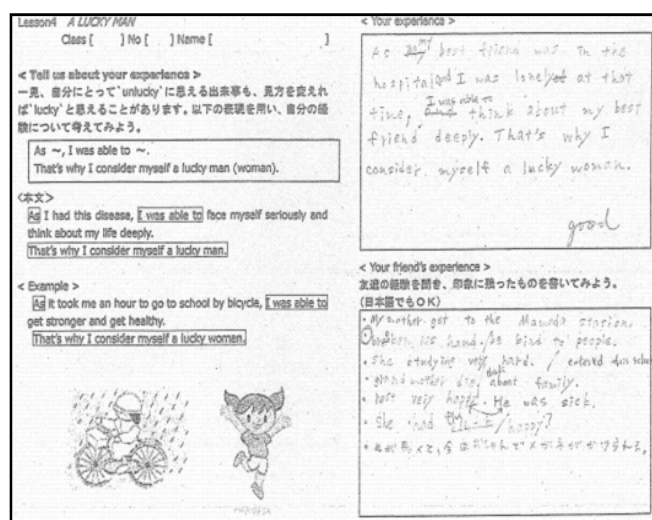 Lesson4 A LUCKY MAN
Class [ ] No [ ] Name [ ]
< Tell us about your experience >
一見、自分にとって`unlucky'に思える出来事も、見方を変えれ
ば`lucky'と思えることがあります。以下の表現を用い、自分の経
験について考えてみよう。
As ～, I was able to ～.
That's why I consider myself a lucky man (woman).
〈本文〉
As I had this disease, I was able to face myself seriously and
think about my life deeply.
That's why I consider myself a lucky man.
< Example >
As it took me an hour to go to school by bicycle, I was able to
get stronger and get healthy.
That's why I consider myself a lucky woman.
< Your experience >
As my best friend was in the
hospital and I was lonely at that
time, I was able to think about my best
friend deeply. That's why I
consider myself a lucky woman.
good
< Your friend's experience >
友達の経験を聞き、印象に残ったものを書いてみよう。
(日本語でもＯＫ)
・My mother got to the station.
his hand. be kind to people.
・She studying very hard. / entered this
・grand mother die, about family.
・very happy. He was sick.
・She had / happy?